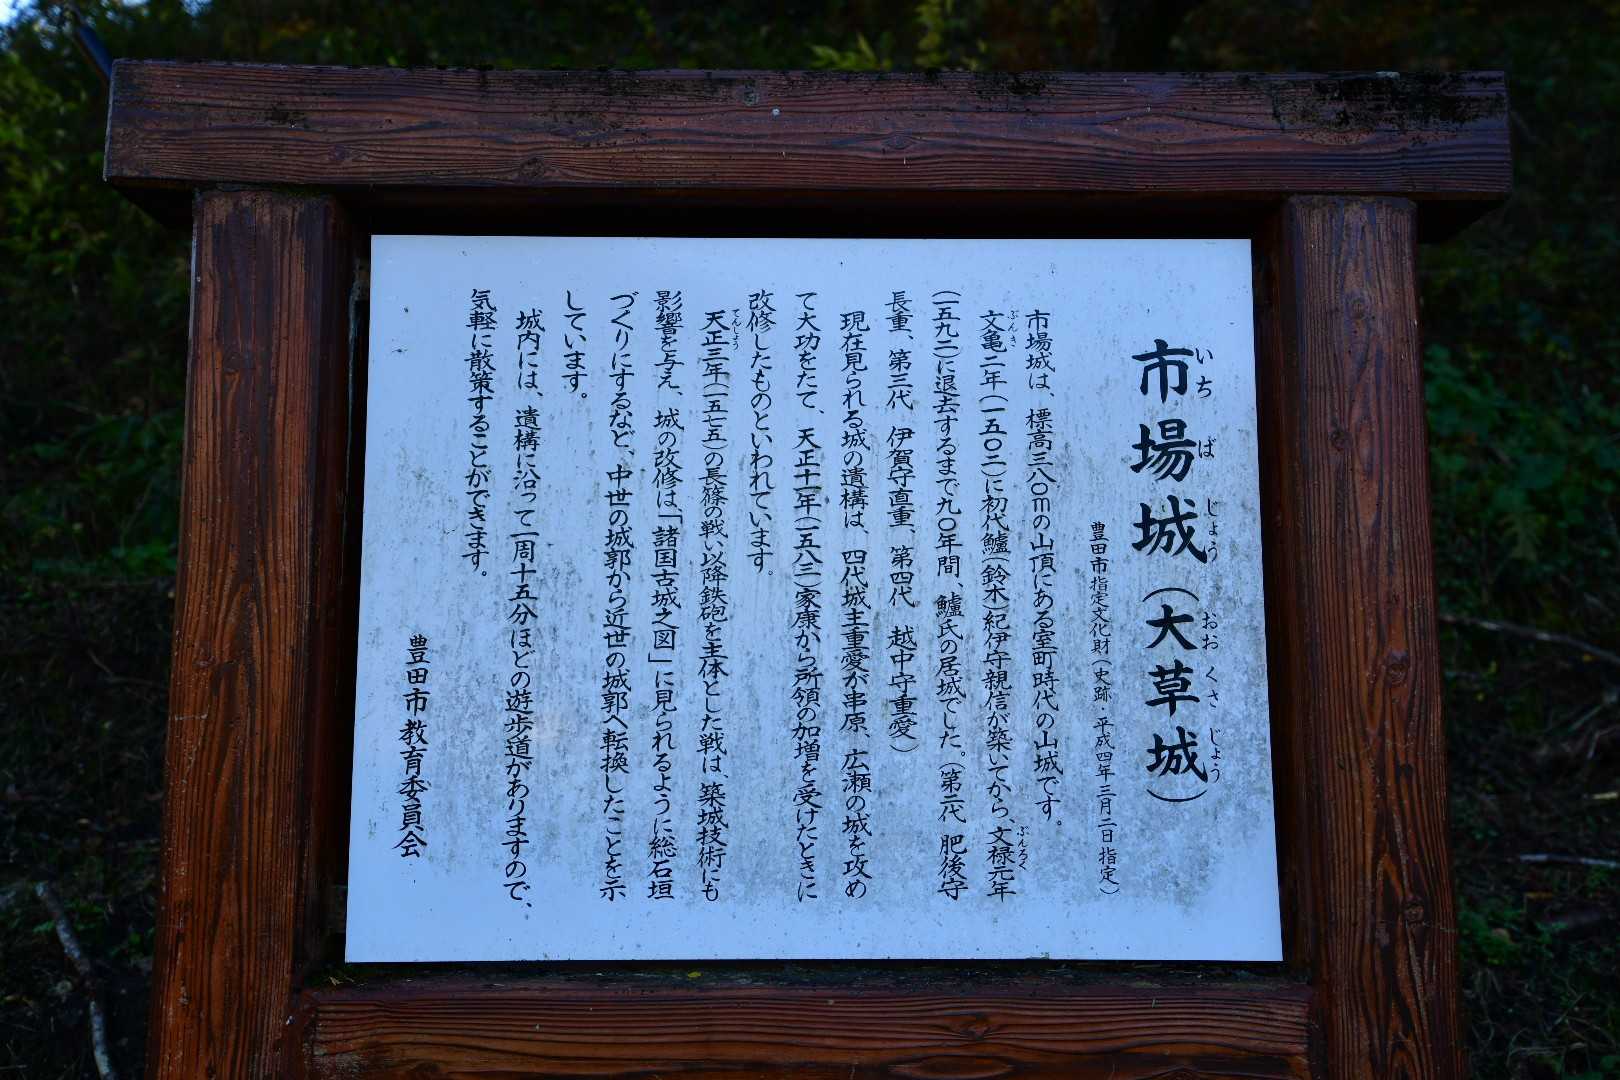 市場城（大草城）
豊田市指定文化財（史跡・平成四年三月二日指定）
市場城は、標高三八〇mの山頂にある室町時代の山城です。
文亀二年（一五〇二）に初代鱸（鈴木）紀伊守親信が築いてから、文禄元年
（一五九二）に退去するまで九〇年間、鱸氏の居城でした。（第二代　肥後守
長重、第三代　伊賀守直重、第四代　越中守重愛）
現在見られる城の遺構は、四代城主重愛が串原、広瀬の城を攻め
て大功をたて、天正十一年（一五八三）家康から所領の加増を受けたときに
改修したものといわれています。
天正三年（一五七五）の長篠の戦い以降鉄砲を主体とした戦は、築城技術にも
影響を与え、城の改修は、「諸国古城之図」に見られるように総石垣
づくりにするなど、中世の城郭から近世の城郭へ転換したことを示
しています。
城内には、遺構に沿って一周十五分ほどの遊歩道がありますので、
気軽に散策することができます。
豊田市教育委員会